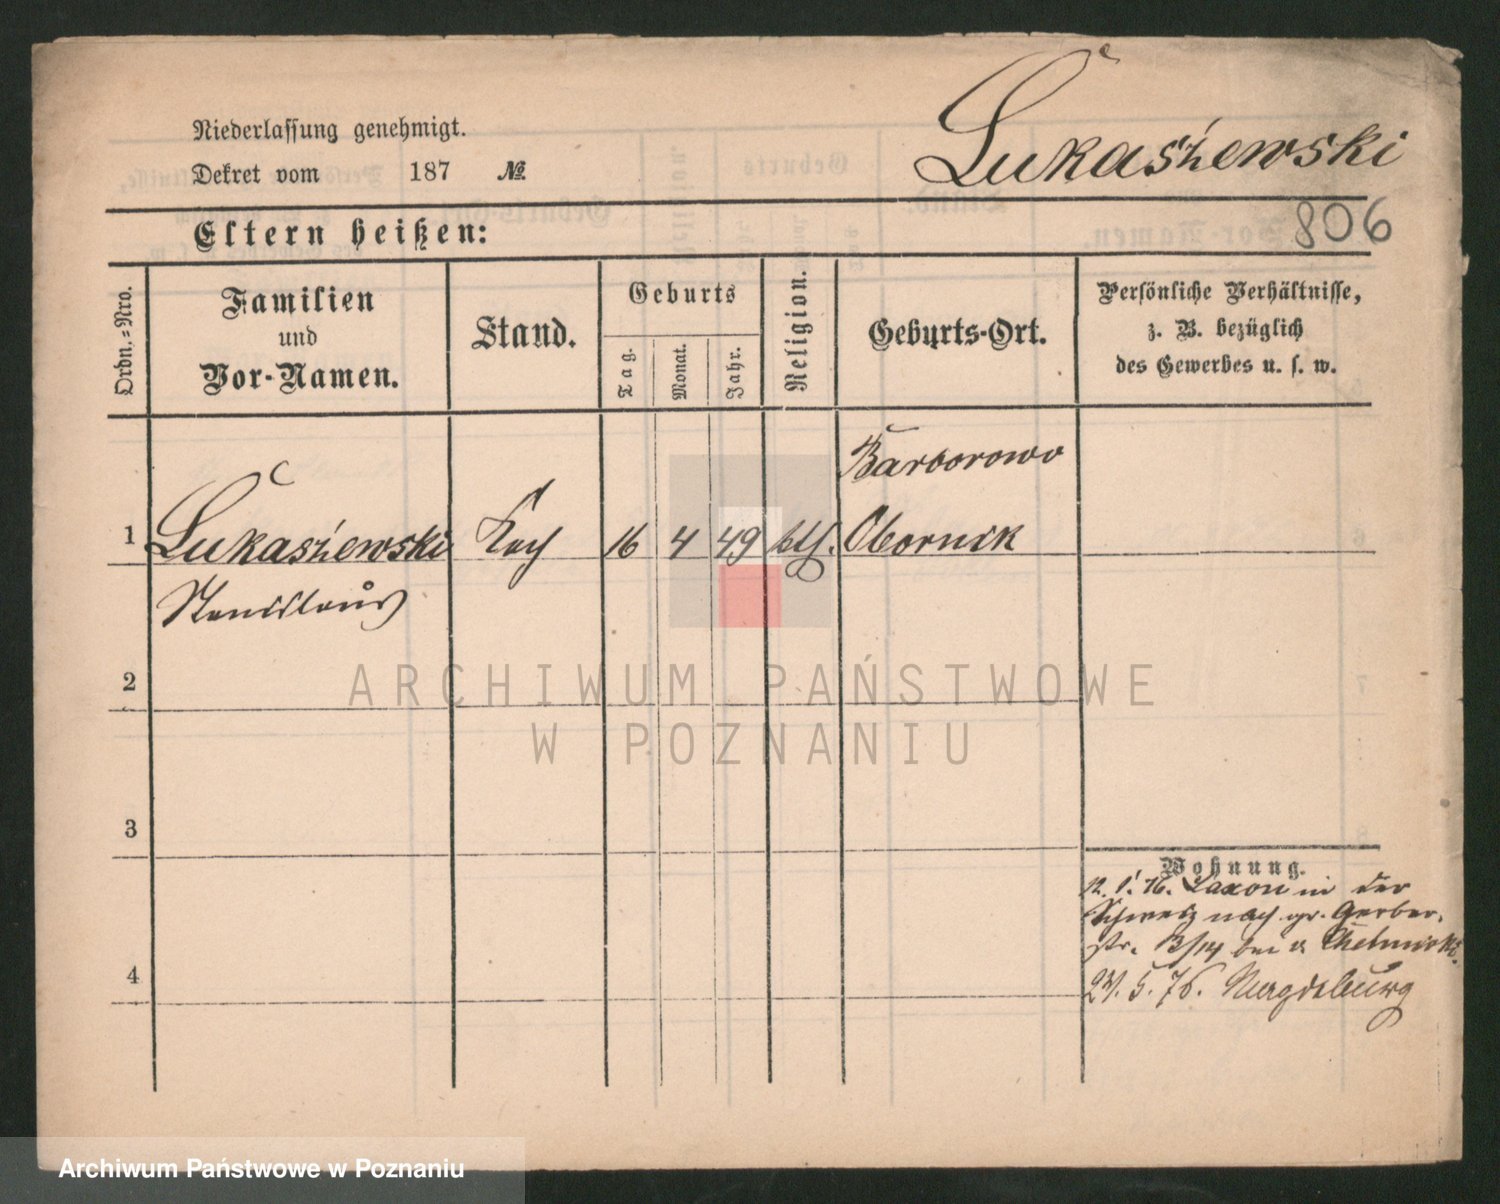 Lukaszewski
Niederlassung genehmigt.
Dekret vom 187 №
806
Eltern heißen:
Ordn.-Nro.
Familien
und
Vor-Namen.
Stand.
Geburts
Tag.
Monat.
Jahr.
Religion.
Geburts-Ort.
Persönliche Verhältnisse,
z. B. bezüglich
des Gewerbes u. s. w.
Barborowo
1 Lukaszewski Koch 16 4 49 kth. Obornik
Stanislaus
2
ARCHIWUM PAŃSTWOWE
W POZNANIU
3
Wohnung.
12. 1. 76. Saxon in der
Schweiz nach gr. Gerber.
str. 13/14 bei v. Chelmicki.
5. 76. Magdeburg
4
Archiwum Państwowe w Poznaniu